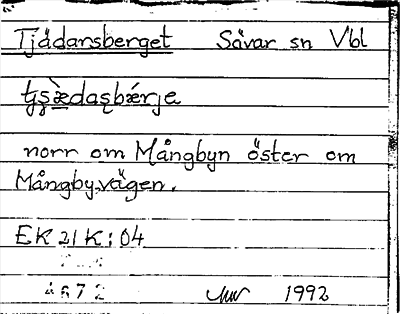 Tjädarsberget Sävar sn Vbl
norr om Mångbyn öster om
Mångbyvägen.
EK 21 K : 04
4672 1992